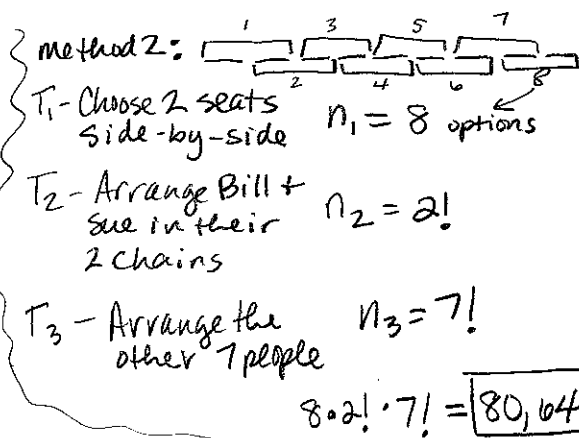 method 2:
1 3 5 7
2 4 6 8
T1 - Choose 2 seats
side-by-side
n1 = 8 options
T2 - Arrange Bill +
Sue in their
2 chairs
n2 = 2!
T3 - Arrange the
other 7 people
n3 = 7!
8·2!·7! = 80,64